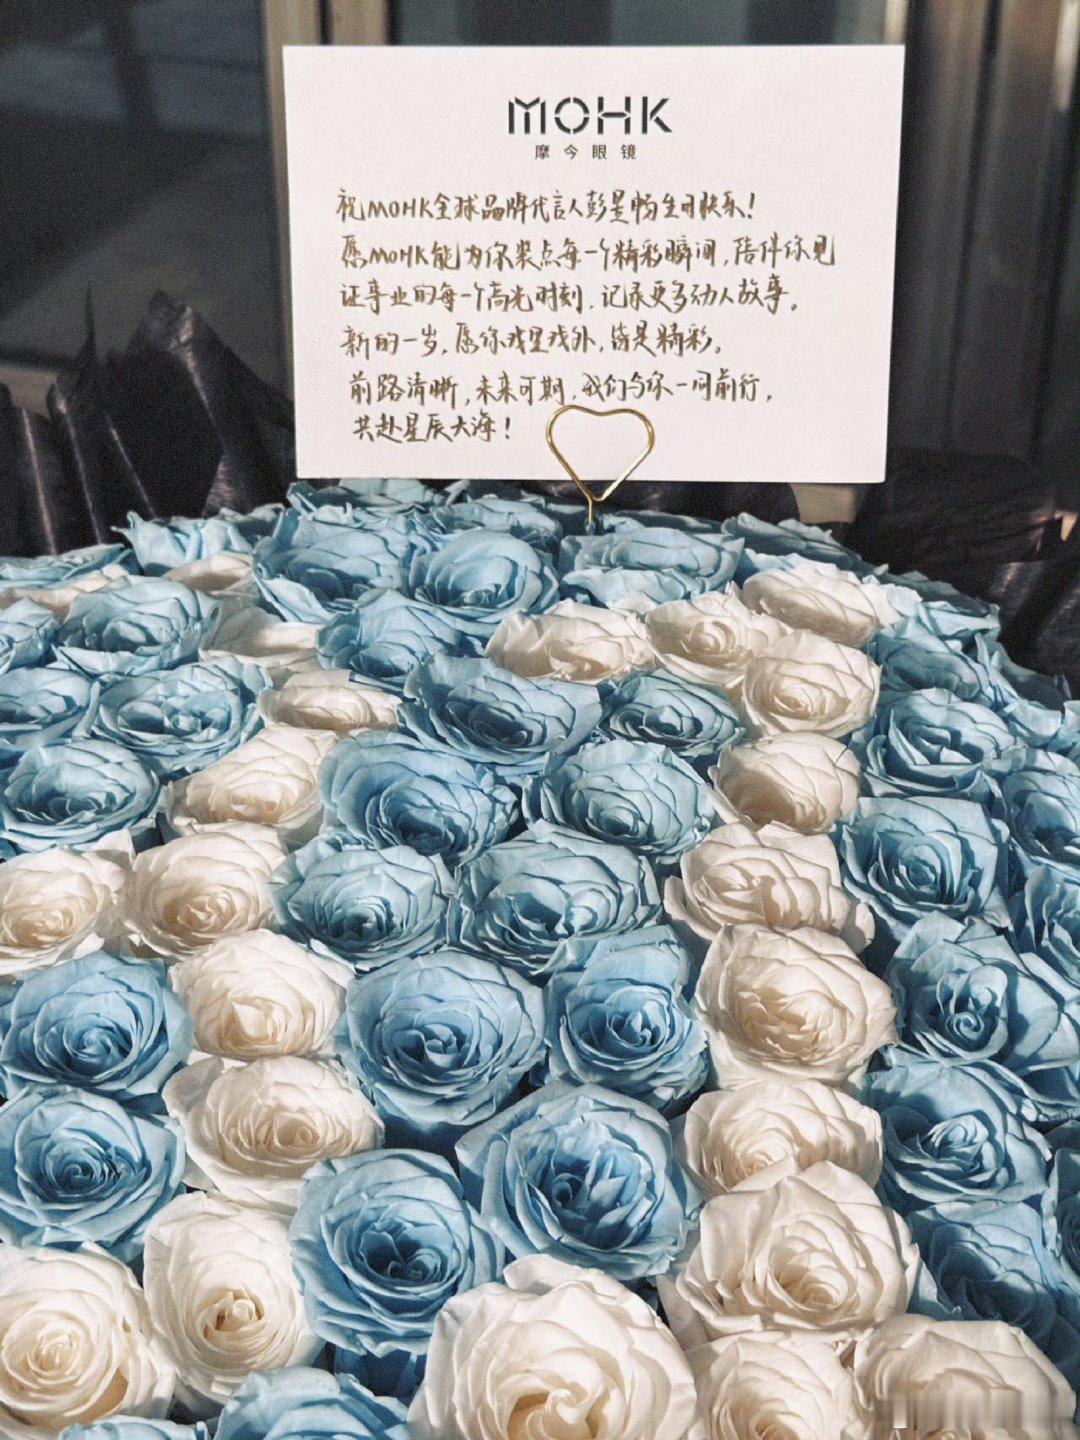 MOHK
摩今眼镜
祝MOHK全球品牌代言人彭昱畅生日快乐！
愿MOHK能为你装点每一个精彩瞬间，陪伴你见
证事业的每一个高光时刻，记录更多动人故事。
新的一岁，愿你戏里戏外，皆是精彩。
前路清晰，未来可期，我们与你一同前行，
共赴星辰大海！